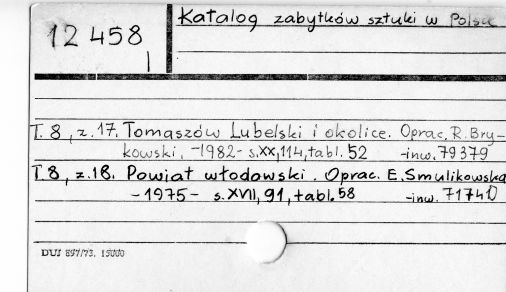 12 458
Katalog zabytków sztuki w Polsce
T. 8, z.17. Tomaszów Lubelski i okolice. Oprac. R. Bry-
kowski. -1982- s.XX,114,tabl.52 -inw. 79379
T.8, z.18. Powiat włodawski. Oprac. E.Smulikowska
-1975- s.XVII,91,tabl.58 -inw. 71740
DUJ 897/73. 15000